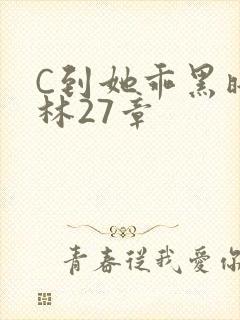 C到她乖黑時
林27章
青春從我愛你